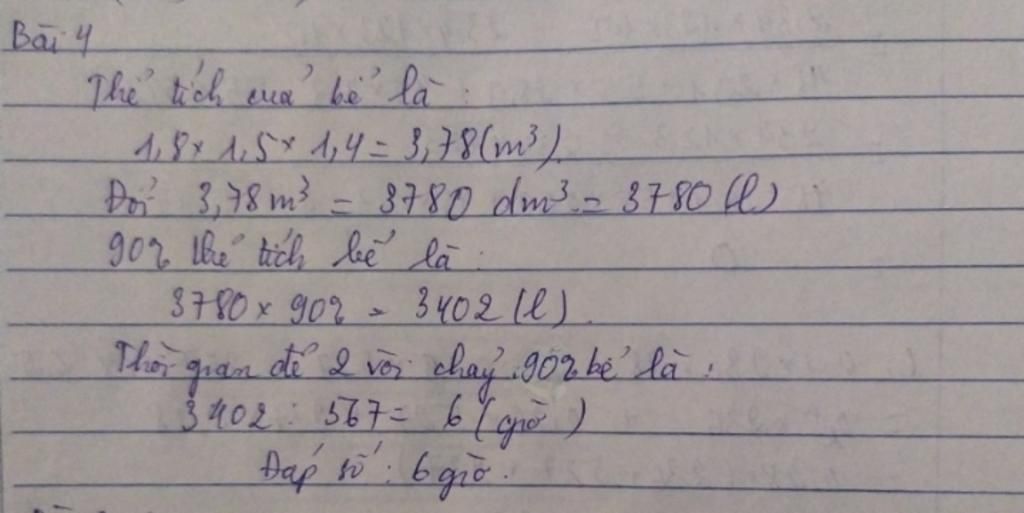 Bài 4
Thể tích của bể là:
1,8 × 1,5 × 1,4 = 3,78 (m³).
Đổi 3,78 m³ = 3780 dm³ = 3780 (l)
90% thể tích bể là:
3780 × 90% = 3402 (l).
Thời gian để 2 vòi chảy 90% bể là:
3402 : 567 = 6 (giờ)
Đáp số: 6 giờ.